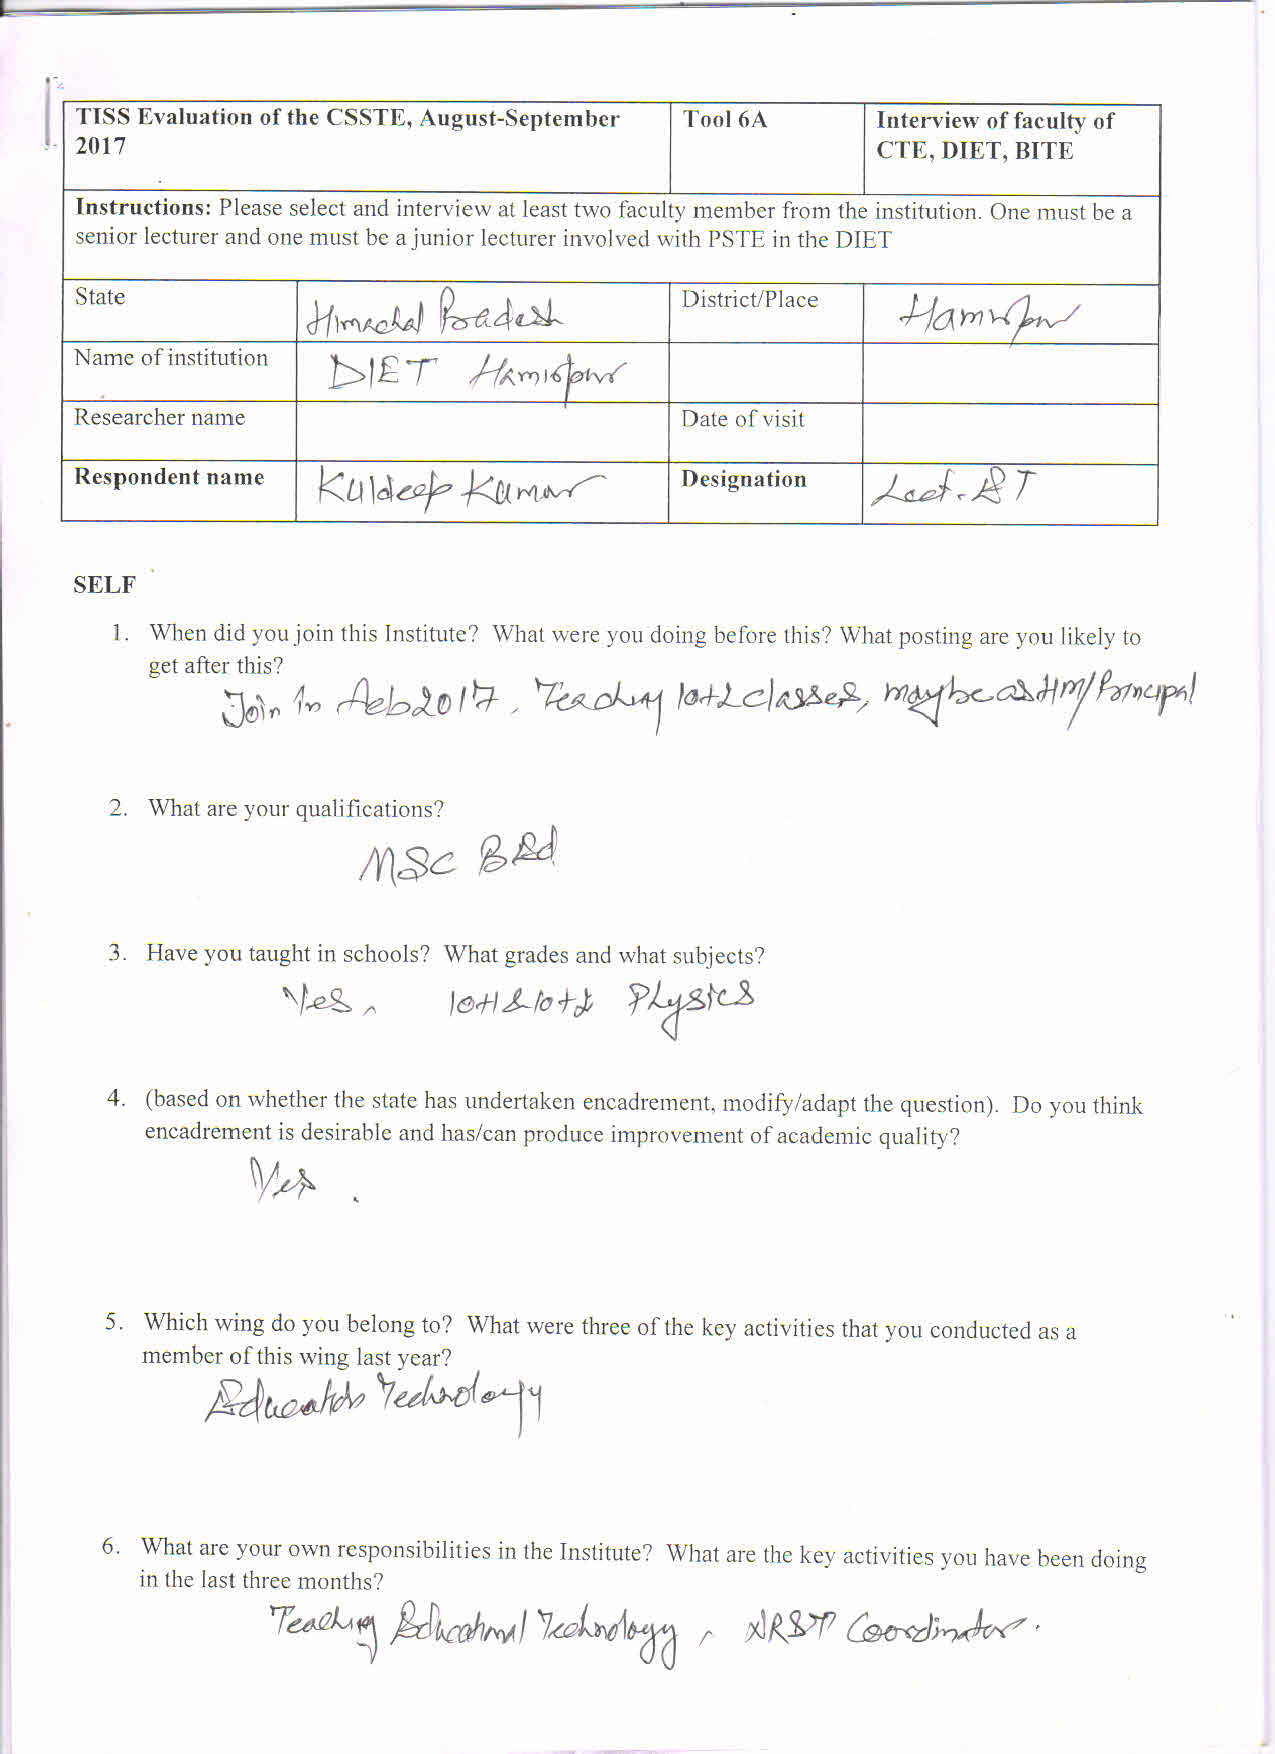 TISS Evaluation of the CSSTE, August-September 2017
Tool 6A
Interview of faculty of CTE, DIET, BITE
Instructions: Please select and interview at least two faculty member from the institution. One must be a
senior lecturer and one must be a junior lecturer involved with PSTE in the DIET
State Himachal Pradesh District/Place Hamirpur
Name of institution DIET Hamirpur
Researcher name Date of visit
Respondent name Kuldeep Kumar Designation Lect.
SELF
1. When did you join this Institute? What were you doing before this? What posting are you likely to
get after this?
Join in Feb 2017, Teaching 10+2 classes, maybe as HM/Principal
2. What are your qualifications?
MSc BEd
3. Have you taught in schools? What grades and what subjects?
Yes, 10+1 & 10+2 Physics
4. (based on whether the state has undertaken encadrement, modify/adapt the question). Do you think
encadrement is desirable and has/can produce improvement of academic quality?
Yes.
5. Which wing do you belong to? What were three of the key activities that you conducted as a
member of this wing last year?
Education Technology
6. What are your own responsibilities in the Institute? What are the key activities you have been doing
in the last three months?
Teaching Educational Technology, Coordinator.